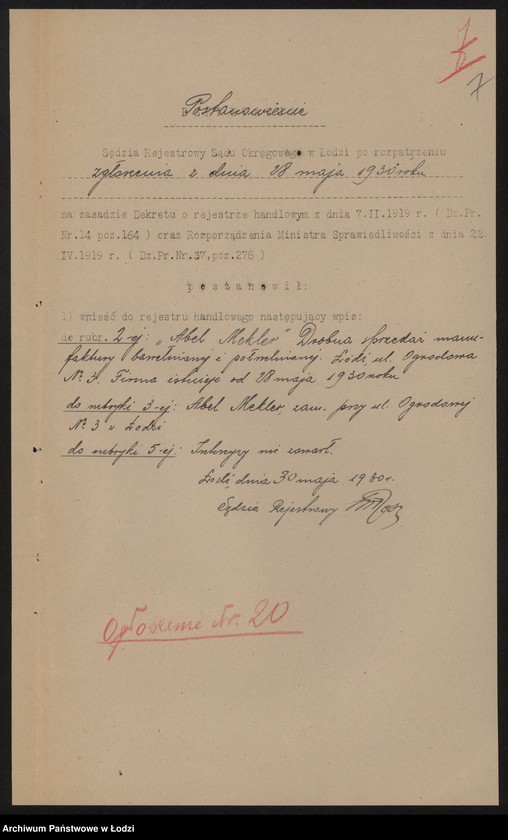 7
7
Postanowienie
Sędzia Rejestrowy Sądu Okręgowego w Łodzi po rozpatrzeniu
zgłoszenia z dnia 28 maja 1930 roku
na zasadzie Dekretu o rejestrze handlowym z dnia 7.II.1919 r. ( Dz.Pr.
Nr.14 poz.164 ) oraz Rozporządzenia Ministra Sprawiedliwości z dnia 22
IV.1919 r. ( Dz.Pr.Nr.37,poz.276 )
p o s t a n o w i ł :
1) wnieść do rejestru handlowego następujący wpis:
do rubr. 2-ej: "Abel Mekler" Drobna sprzedaż manu-
faktury bawełnianej i półwełnianej. Łódź ul. Ogrodowa
№ 3. Firma istnieje od 28 maja 1930 roku
do rubryki 3-ej: Abel Mekler, zam. przy ul. Ogrodowej
№ 3 w Łodzi
do rubryki 5-ej: Intercyzy nie zawarł.
Łódź, dnia 30 maja 1930 r.
Sędzia Rejestrowy
Ogłoszenie Nr. 20
Archiwum Państwowe w Łodzi